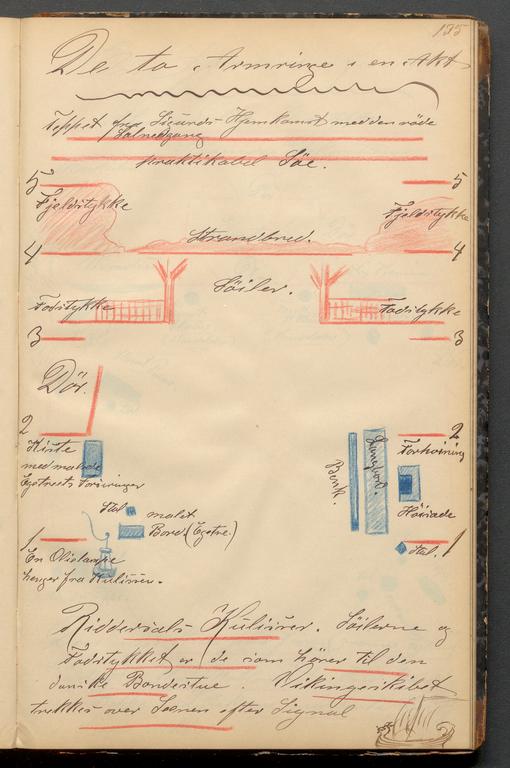 155
De to Armringe i en Akt
Teppet fra Sigurds Hjemkomst med den røde
praktikabel Söe.
5 5
Fjeldstykke Fjeldstykke
Strandbred.
4 4
Söiler.
Fodstykke Fodstykke
3 3
Dör.
2 2
Kiste Forhöining
med malede
Egetræets Forsiringer
Langbord.
Bænk.
Höisæde
Stol malet
Bord (Egetræ.)
1 Stol. 1
En Olielampe
henger fra Kulissen.
Riddersals Kulisser. Söilerne og
Fodstykket er de som hörer til den
danske Bondestue. Vikingeskibet
trekkes over Scenen efter Signal